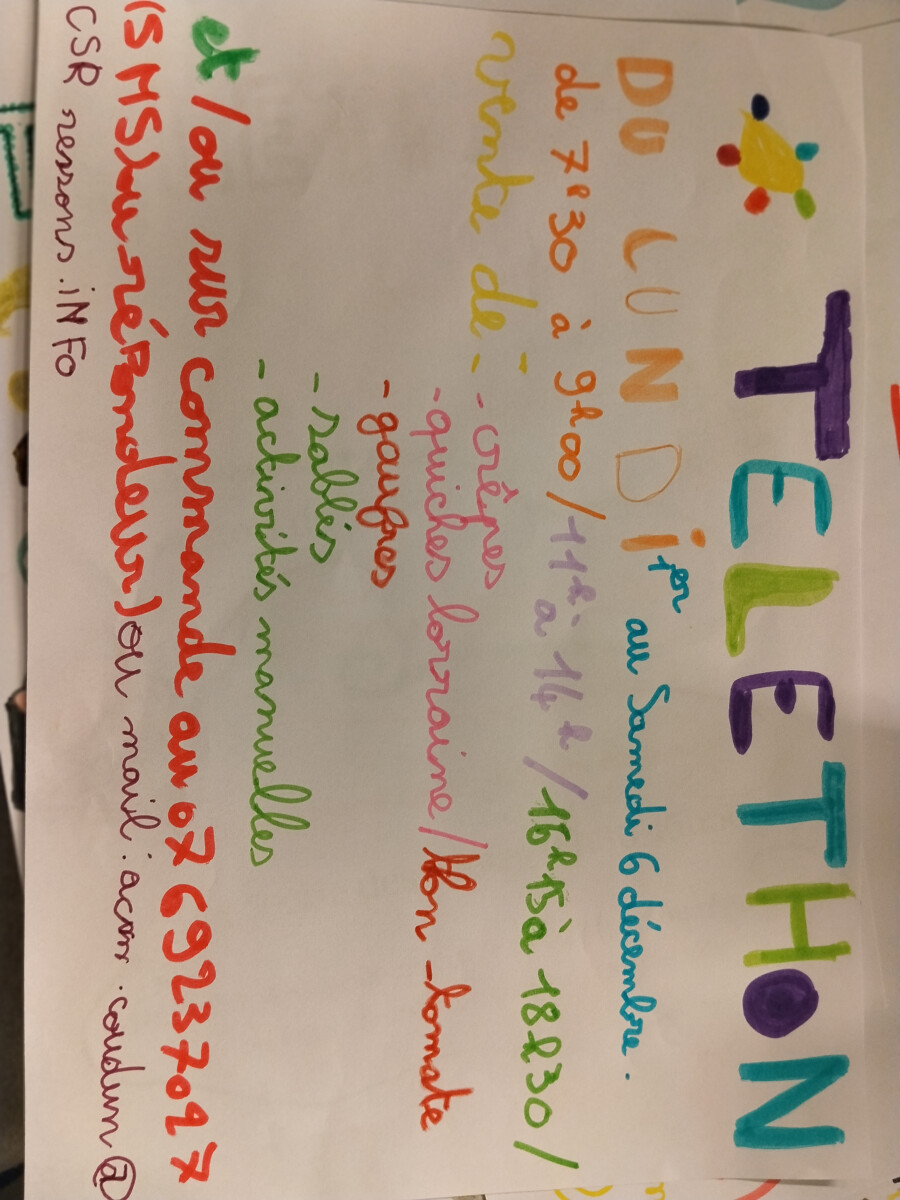 TELETHON
DU LUNDI 1er au Samedi 6 décembre.
de 7h30 à 9h00/11h- à 14h/16h15 à 18h30/
vente de :- crêpes
- quiches lorraine/thon-tomate
- gaufres
- sablés
- activités manuelles
et/ou sur commande au 07 69237027
(SMS) ou répondeur) ou mail: acsr.coudun@
CSR ressons.iNFo